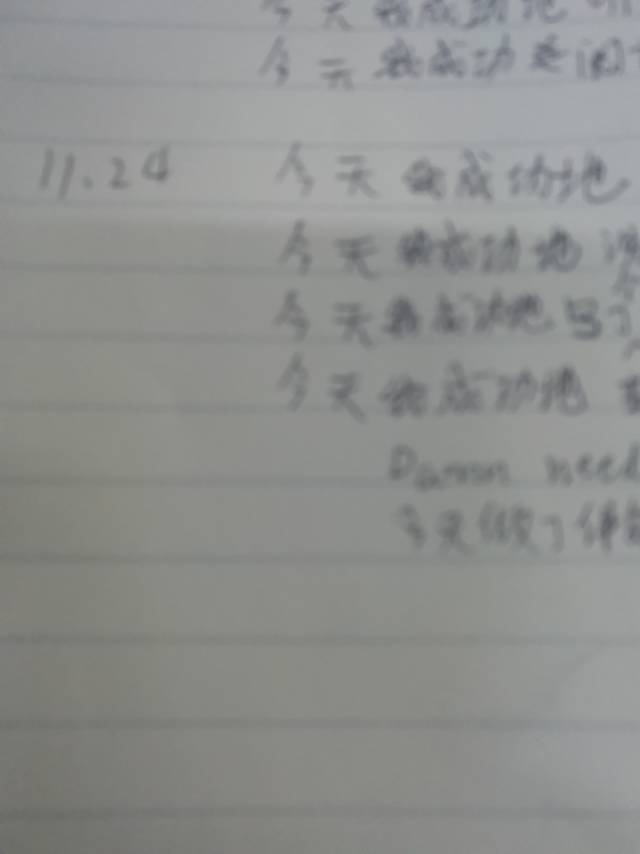 今天我成功地
今天我成功
11.24 今天我成功地
今天我成功地
今天我成功地写了
今天我成功地
Damon need
今天做了